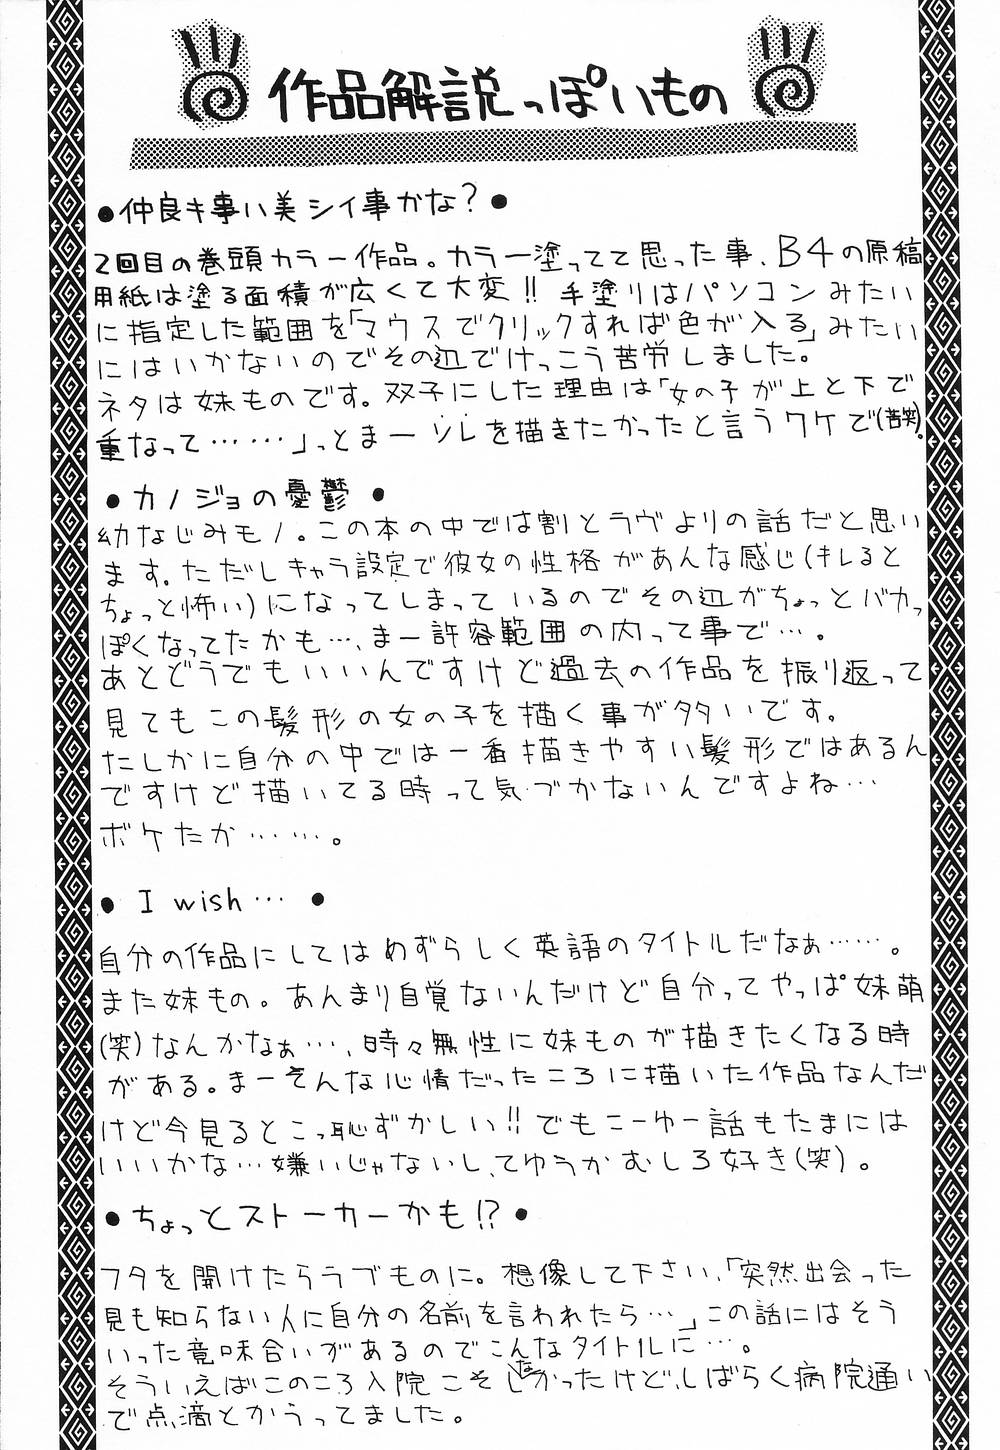 作品解説っぽいもの
●仲良キ事ハ美シイ事かな?●
2回目の巻頭カラー作品。カラー塗ってて思った事、B4の原稿
用紙は塗る面積が広くて大変!!手塗りはパソコンみたい
に指定した範囲を「マウスでクリックすれば色が入る」みたい
にはいかないのでその辺でけっこう苦労しました。
ネタは妹ものです。双子にした理由は「女の子が上と下で
重なって……」っとまーソレを描きたかったと言うワケで(苦笑)。
●カノジョの憂鬱●
幼なじみモノ。この本の中では割とラヴよりの話だと思い
ます。ただしキャラ設定で彼女の性格があんな感じ(キレると
ちょっと怖い)になってしまっているのでその辺がちょっとバカっ
ぽくなってたかも…、まー許容範囲の内って事で…。
あとどうでもいいんですけど過去の作品を振り返って
見てもこの髪形の女の子を描く事が多いです。
たしかに自分の中では一番描きやすい髪形ではあるん
ですけど描いてる時って気づかないんですよね…
ボケたか……。
● I wish… ●
自分の作品にしてはめずらしく英語のタイトルだなぁ……。
また妹もの。あんまり自覚ないんだけど自分ってやっぱ妹萌
(笑)なんかなぁ…、時々無性に妹ものが描きたくなる時
がある。まーそんな心情だったころに描いた作品なんだ
けど今見るとこっ恥ずかしい!!でもこーゆー話もたまには
いいかな…嫌いじゃないし、てゆうかむしろ好き(笑)。
●ちょっとストーカーかも!?●
フタを開けたらラブものに。想像して下さい、「突然出会った
見も知らない人に自分の名前を言われたら…」この話にはそう
いった意味合いがあるのでこんなタイトルに…。
そういえばこのころ入院こそしなかったけど、しばらく病院通い
で点滴とかうってました。